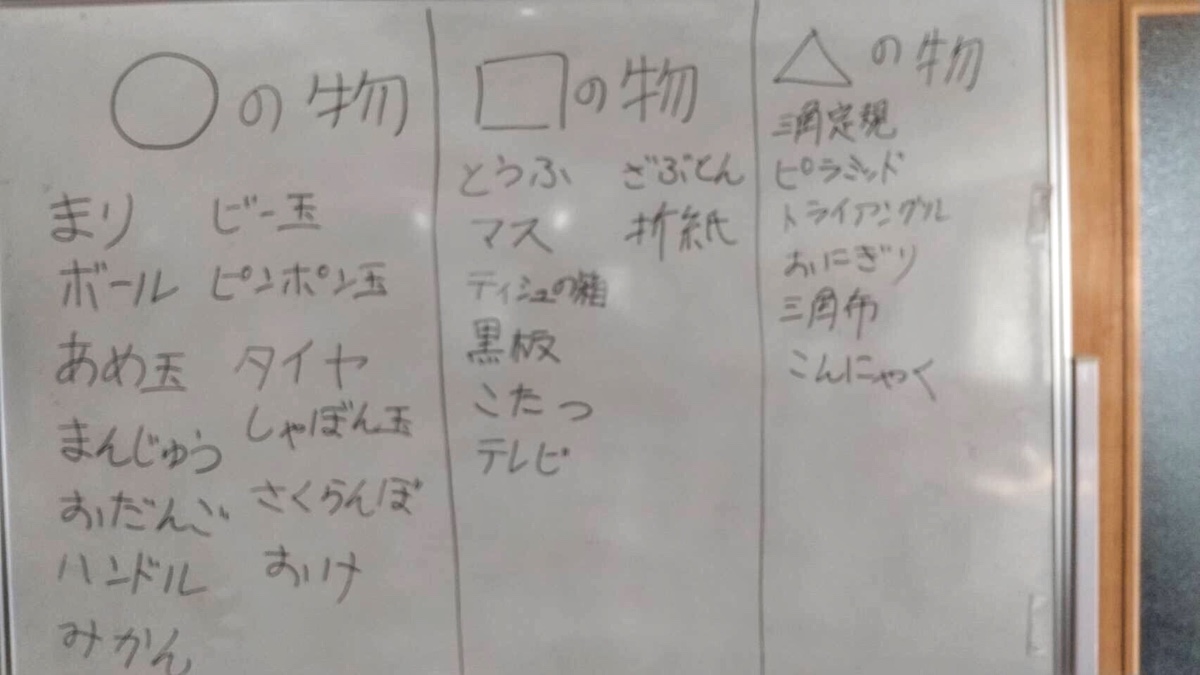 ○の物
まり
ボール
あめ玉
まんじゅう
おだんご
ハンドル
みかん
ビー玉
ピンポン玉
タイヤ
しゃぼん玉
さくらんぼ
おけ
□の物
とうふ
マス
ティシュの箱
黒板
こたつ
テレビ
ざぶとん
折紙
△の物
三角定規
ピラミッド
トライアングル
おにぎり
三角布
こんにゃく